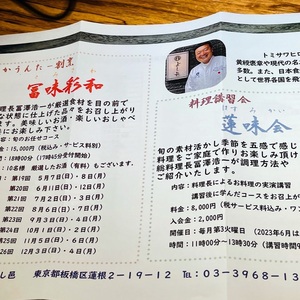 トミサワヒ
黄綬褒章や現代の名
多数。また、日本食
として世界各国を飛
かうんたー割烹
冨味彩和
理長冨澤浩一が厳選食材を目の前で
な状態に仕上げた品々をお召し上がり
ます。美味しいお酒・楽しいおしゃべ
にお楽しみ下さい。
旬のお任せコース
15,000円(税込み・サービス料別)
18時00分(17時45分受付開始)
10名様 厳選したお酒(有料)もございます。
第19回 5月7日(日)・8日(月)
第20回 6月11日(日)・12日(月)
第21回 7月2日(日)・3日(月)
第22回 8月6日(日)・7日(月)
第23回 9月3日(日)・4日(月)
第24回 10月1日(日)・
第25回 11月5日(日)・6日(月)
第26回 12月3日(日)・4日(月)
料理講習会
はすみかい
蓮味会
旬の素材活かし季節を五感で感じ
料理をご家庭で作りお楽しみ頂け
総料理長冨澤浩一が調理方法や
ご紹介します。
内容:料理長によるお料理の実演講習
講習後に学んだコースをお召上が
料金:8,000円(税サービス料込み・ワン
入会金:2,000円
開催日:毎月第3火曜日(2023年6月は
時間:11時00分~13時30分(講習時間
し邑 東京都板橋区蓮根2-19-12 Tel:03-3968-13